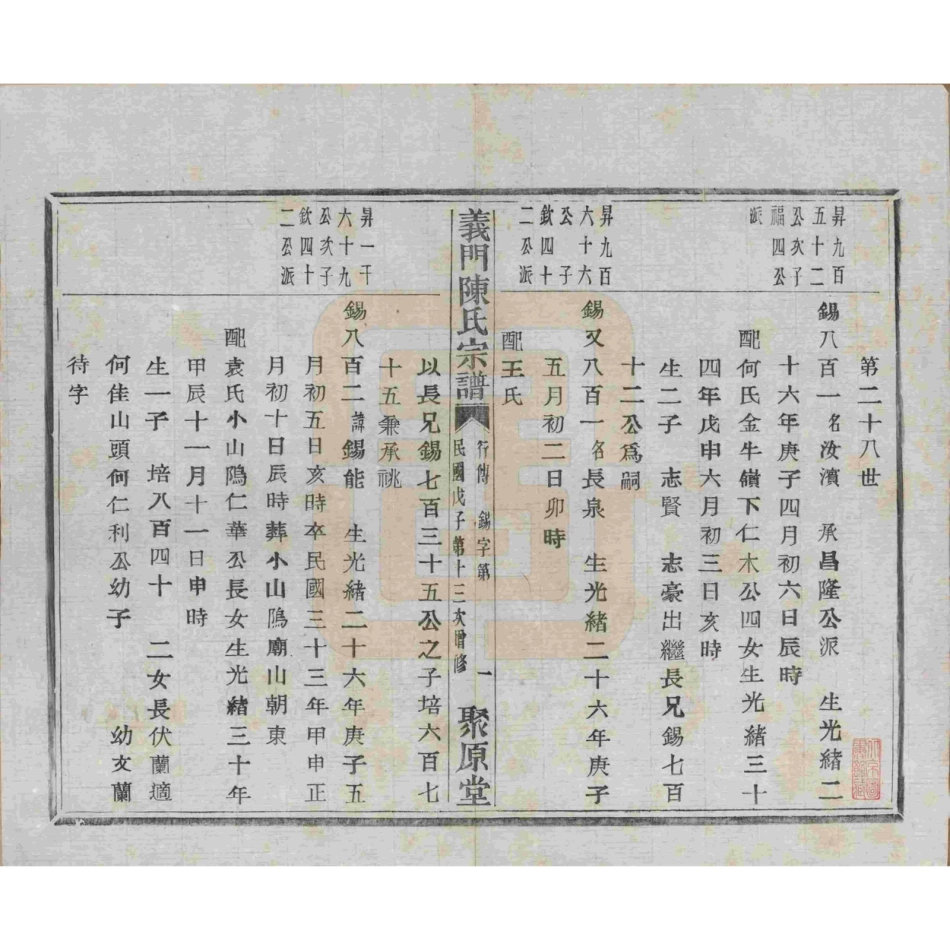 第二十八世
昇九百
五十二
公次子
福四公
派
錫八百一名汝濱 承昌隆公派 生光緒二
十六年庚子四月初六日辰時
配何氏金牛嶺下仁木公四女生光緒三十
四年戊申六月初三日亥時
生二子 志賢 志豪出繼長兄錫七百
十二公爲嗣
昇九百
六十六
公 子
欽四十
二公派
錫又八百一名長泉 生光緒二十六年庚子
五月初二日卯時
配王氏
義門陳氏宗譜 行傳 錫字第 一 聚原堂
民國戊子第十三次增修
以長兄錫七百三十五公之子培六百七
十五兼承祧
昇一千
六十九
公次子
欽四十
二公派
錫八百二諱錫能 生光緒二十六年庚子五
月初五日亥時卒民國三十三年甲申正
月初十日辰時葬小山隖廟山朝東
配袁氏小山隖仁華公長女生光緒三十年
甲辰十一月十一日申時
生一子 培八百四十 二女長伏蘭適
何佳山頭何仁利公幼子 幼支蘭
待字